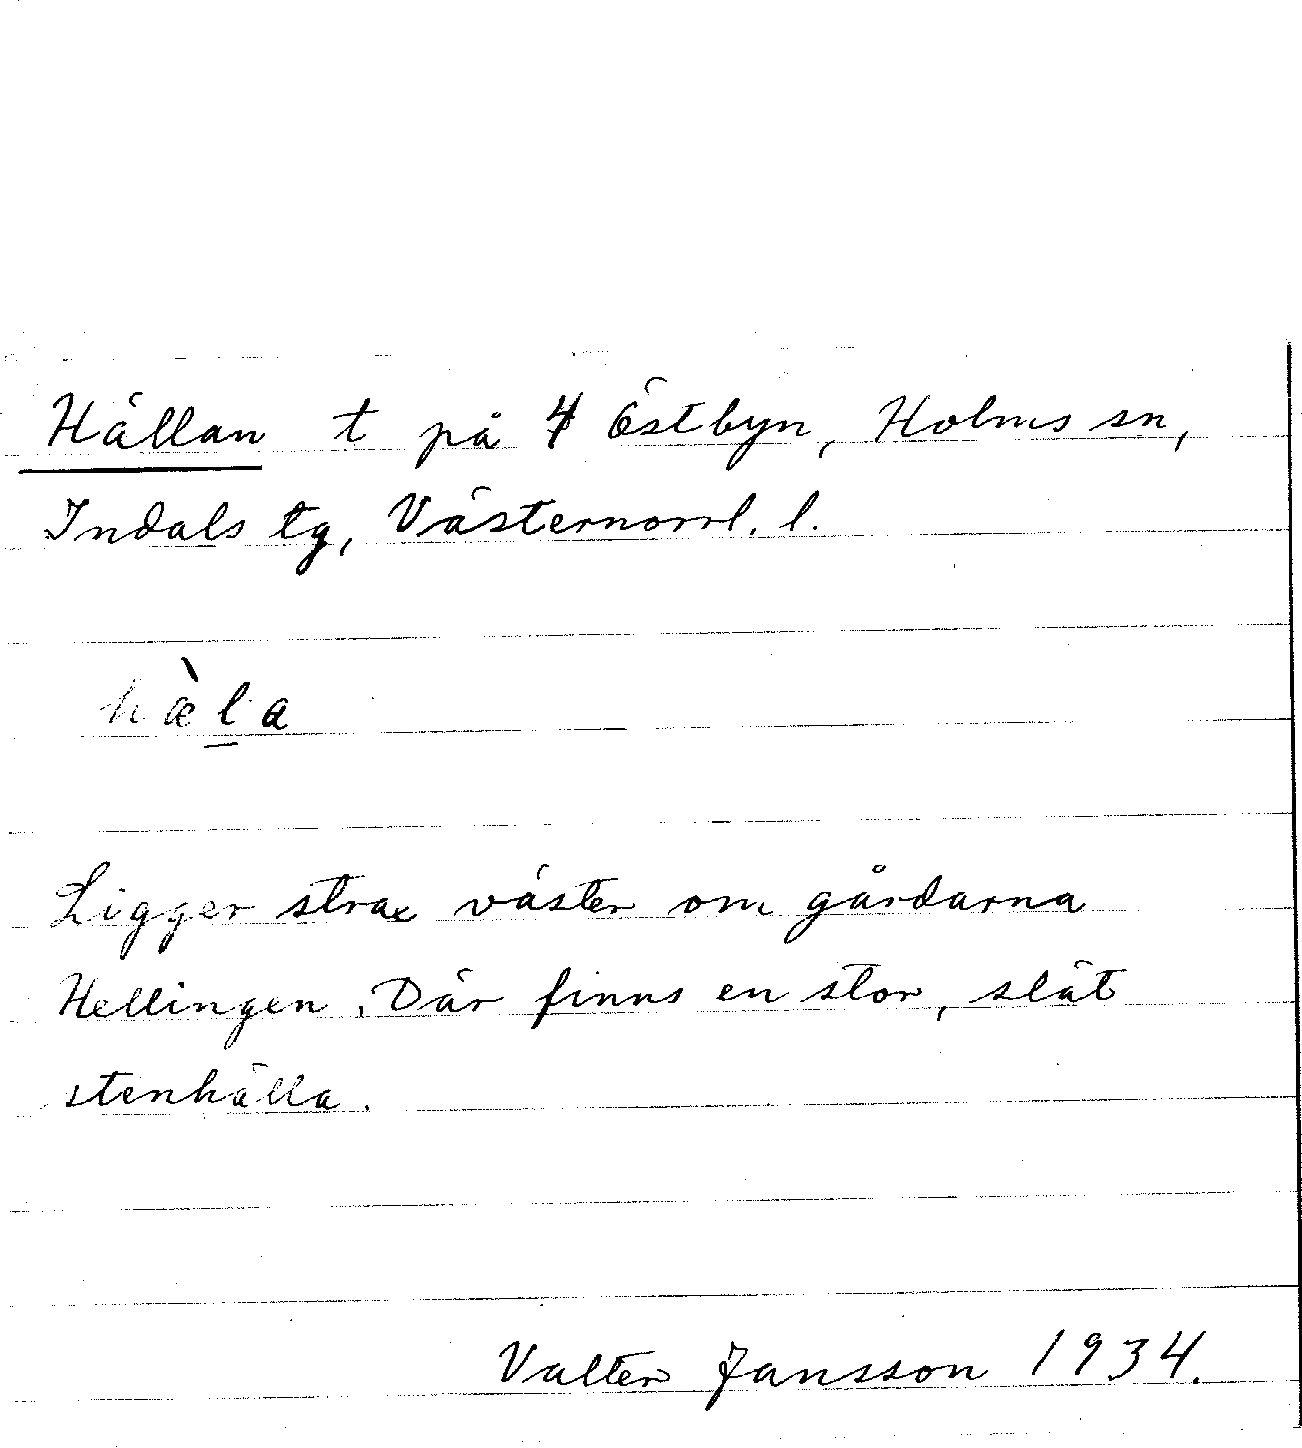 Hällan t på 4 Östbyn, Holms sn,
Indals tg, Västernorrl. l.
hæ̀l̲a
Ligger strax väster om gårdarna
Hellingen. Där finns en stor, slät
stenhälla.
Valter Jansson 1934.